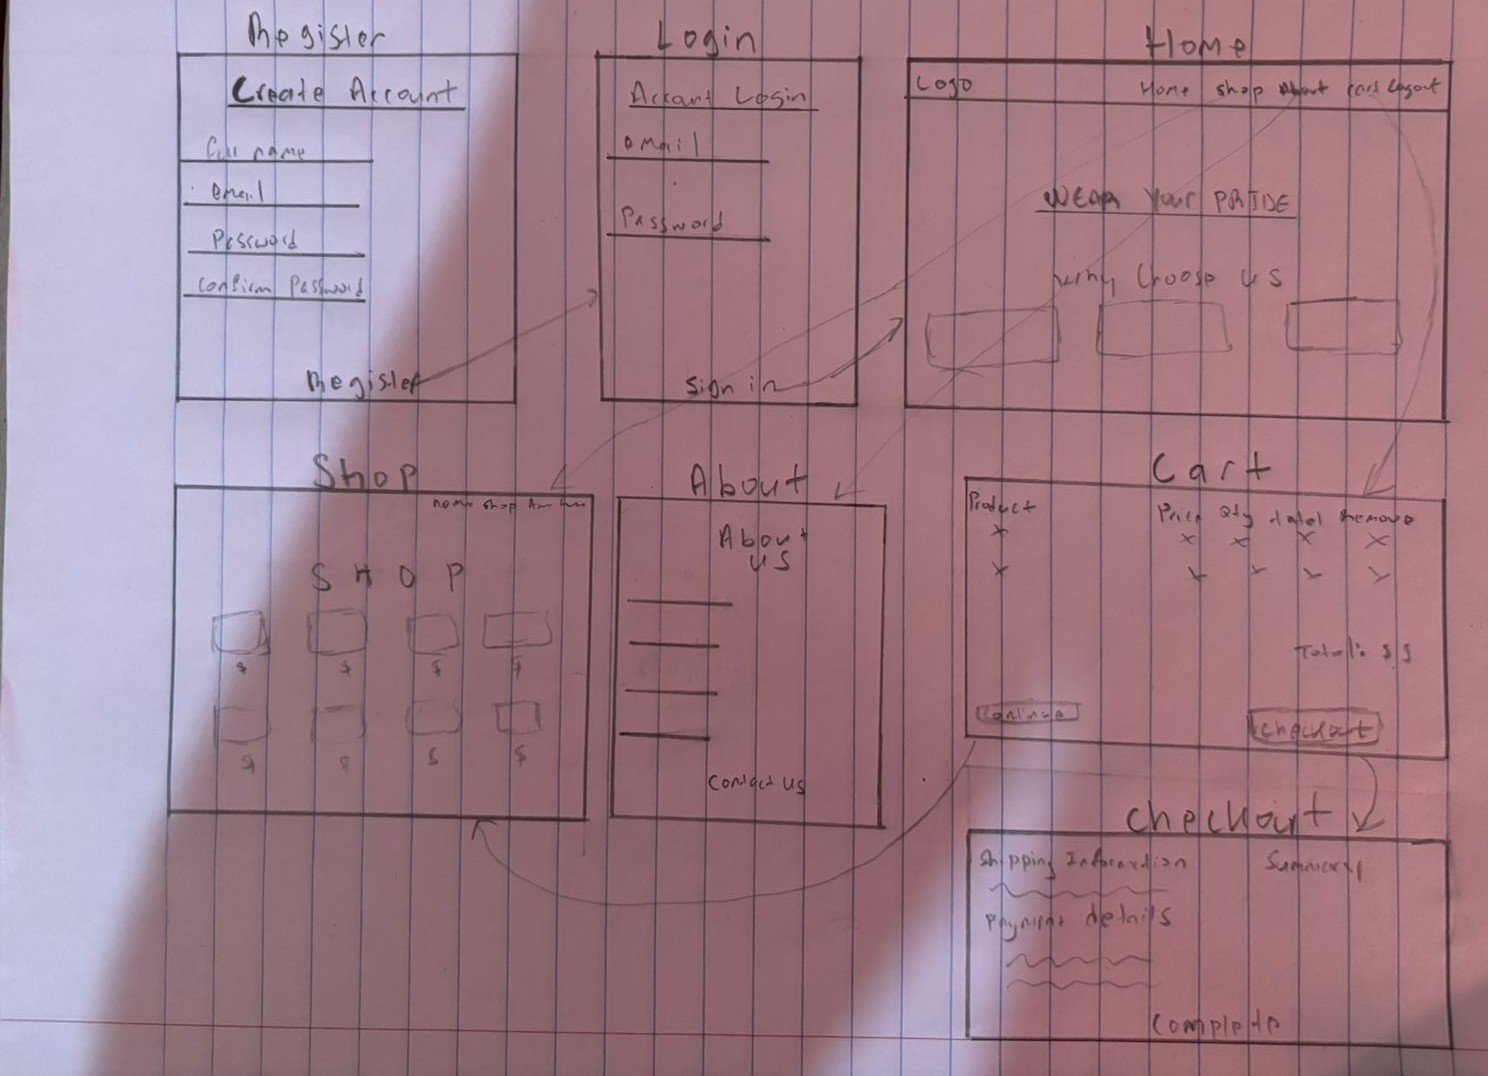 Register
Create Account
Full name
email
Password
Confirm Password
Register
Login
Accant Login
email
Password
Sign in
Home
Logo
Home shop About cart Logout
WEAR Your PRIDE
Why Choose us
Shop
Home shop
S H O P
$ $ $ $
$ $ $ $
About
About
us
Contact us
Cart
Product Price Qty total Remove
x x x x x
Total: $ $
Continue
Checkout
Checkout
Shipping Information Summary
Payment details
Complete